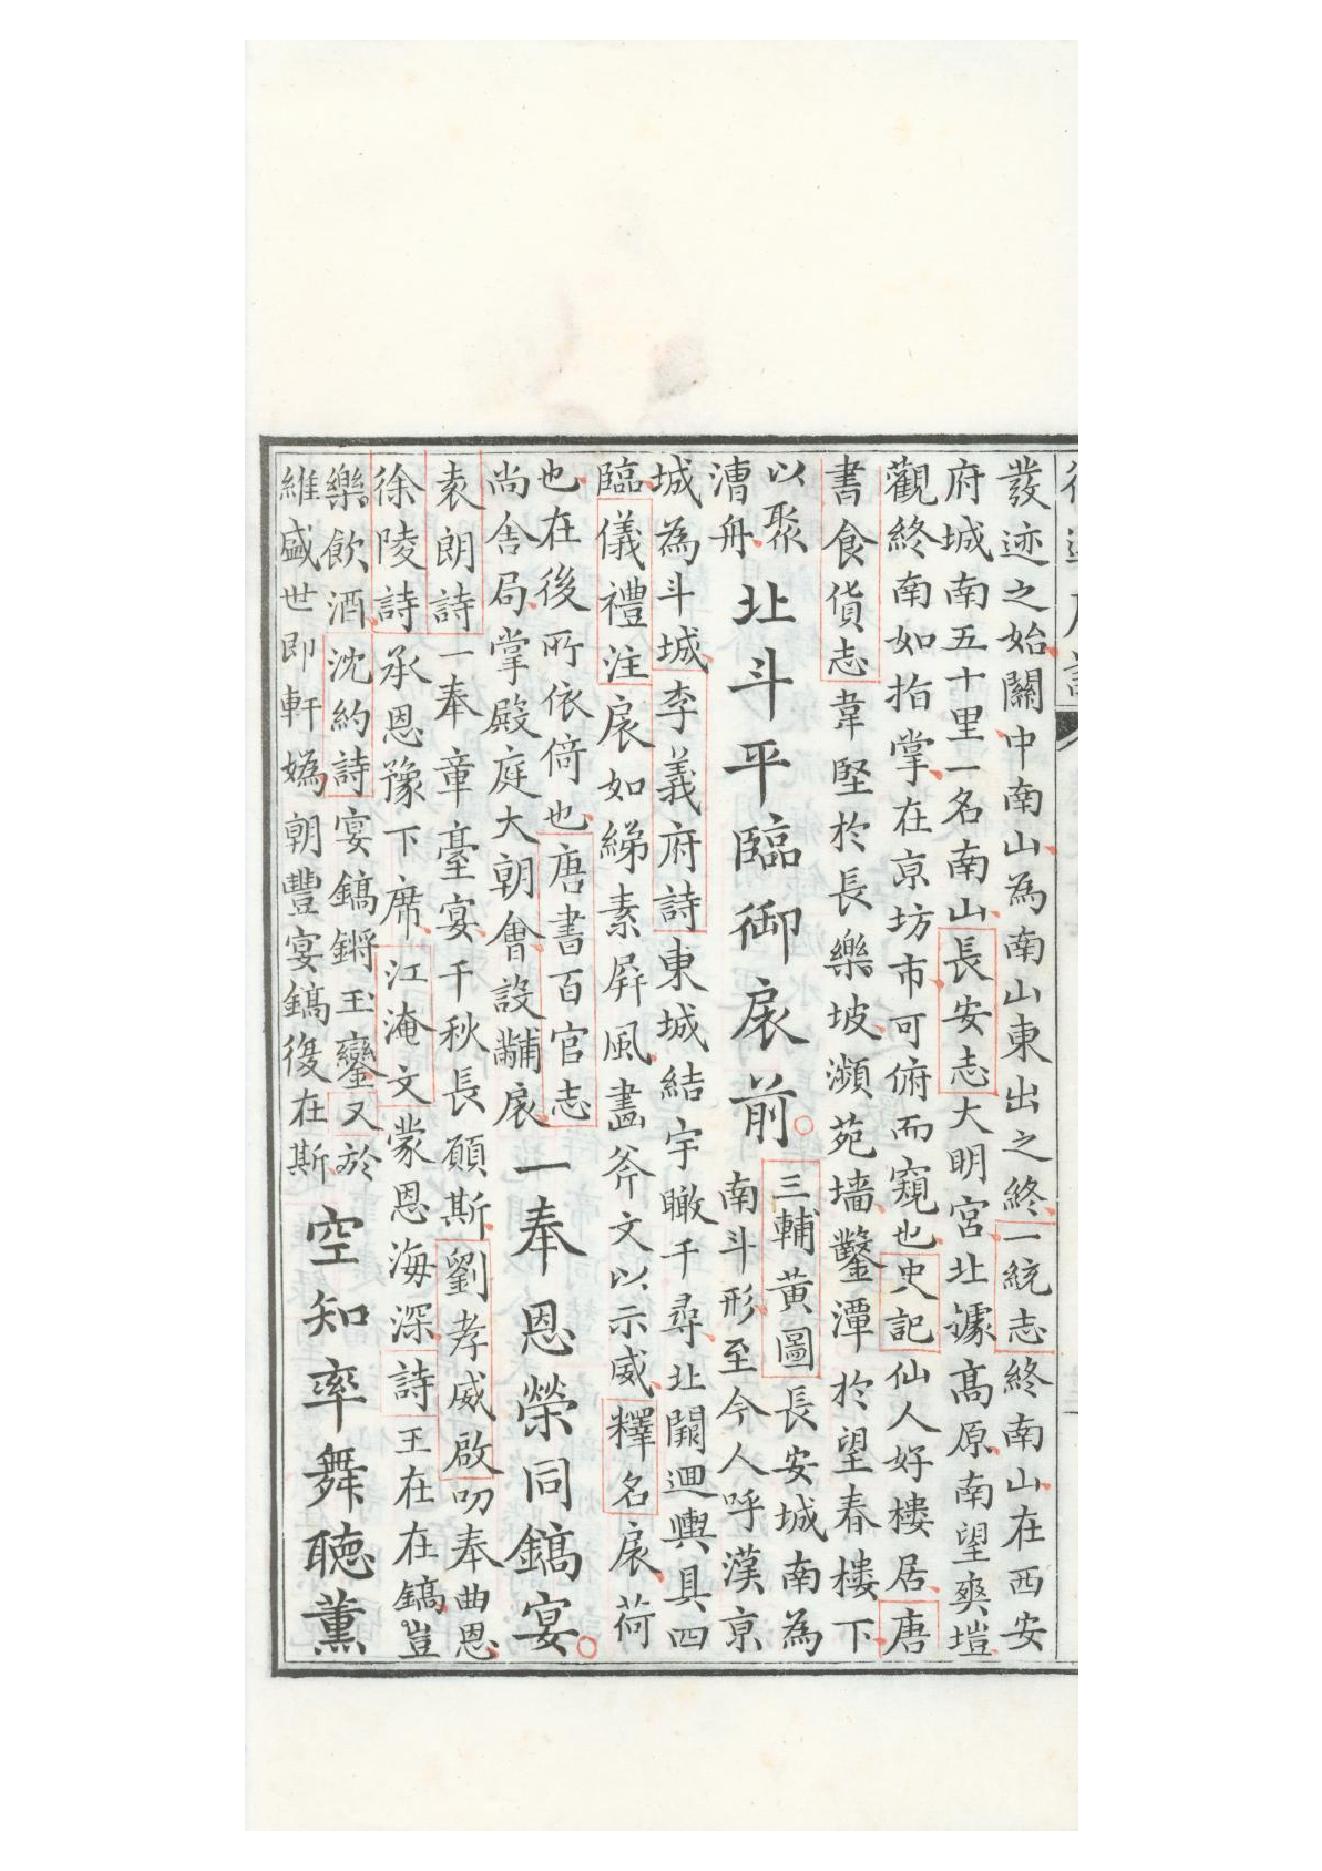 發迹之始關中南山為南山東出之終一統志終南山在西安
府城南五十里一名南山長安志大明宮北據高原南望爽塏
觀終南如指掌在京坊市可俯而窺也史記仙人好樓居唐
書食貨志韋堅於長樂坡瀕苑墻鑿潭於望春樓下
以聚
漕舟
北斗平臨御扆前
三輔黃圖長安城南為
南斗形至今人呼漢京
城為斗城李義府詩東城結宇瞰千尋北闕迴輿具四
臨儀禮注扆如綈素屏風畫斧文以示威釋名扆荷
也在後所依倚也唐書百官志
尚舍局掌殿庭大朝會設黼扆
一奉恩榮同鎬宴
袁朗詩一奉章臺宴千秋長願斯劉孝威啟叨奉曲恩
徐陵詩承恩豫下席江淹文蒙恩海深詩王在在鎬豈
樂飲酒沈約詩宴鎬鏘玉鑾又於
維盛世即軒媯朝豐宴鎬復在斯
空知率舞聽薰